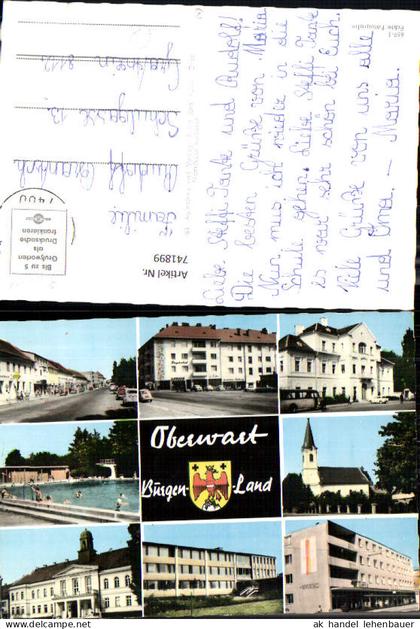 Liebe Steffi-Tante und Rudolf!
Die besten Grüße von Maria
Nun mus ich wieder in die
Schule gehen. Liebe Steffi Tante
is war sehr schön bei Euch.
Viele Grüße von uns alle
und Oma. - Maria.
Familie
Rudolf
Schulgasse 13
Artikel Nr.
741899
Bis zu 5
Grußworten
als
Drucksache
frankieren
7400
Echte Fotografie
Oberwart
Burgen-Land
ak handel lehenbauer